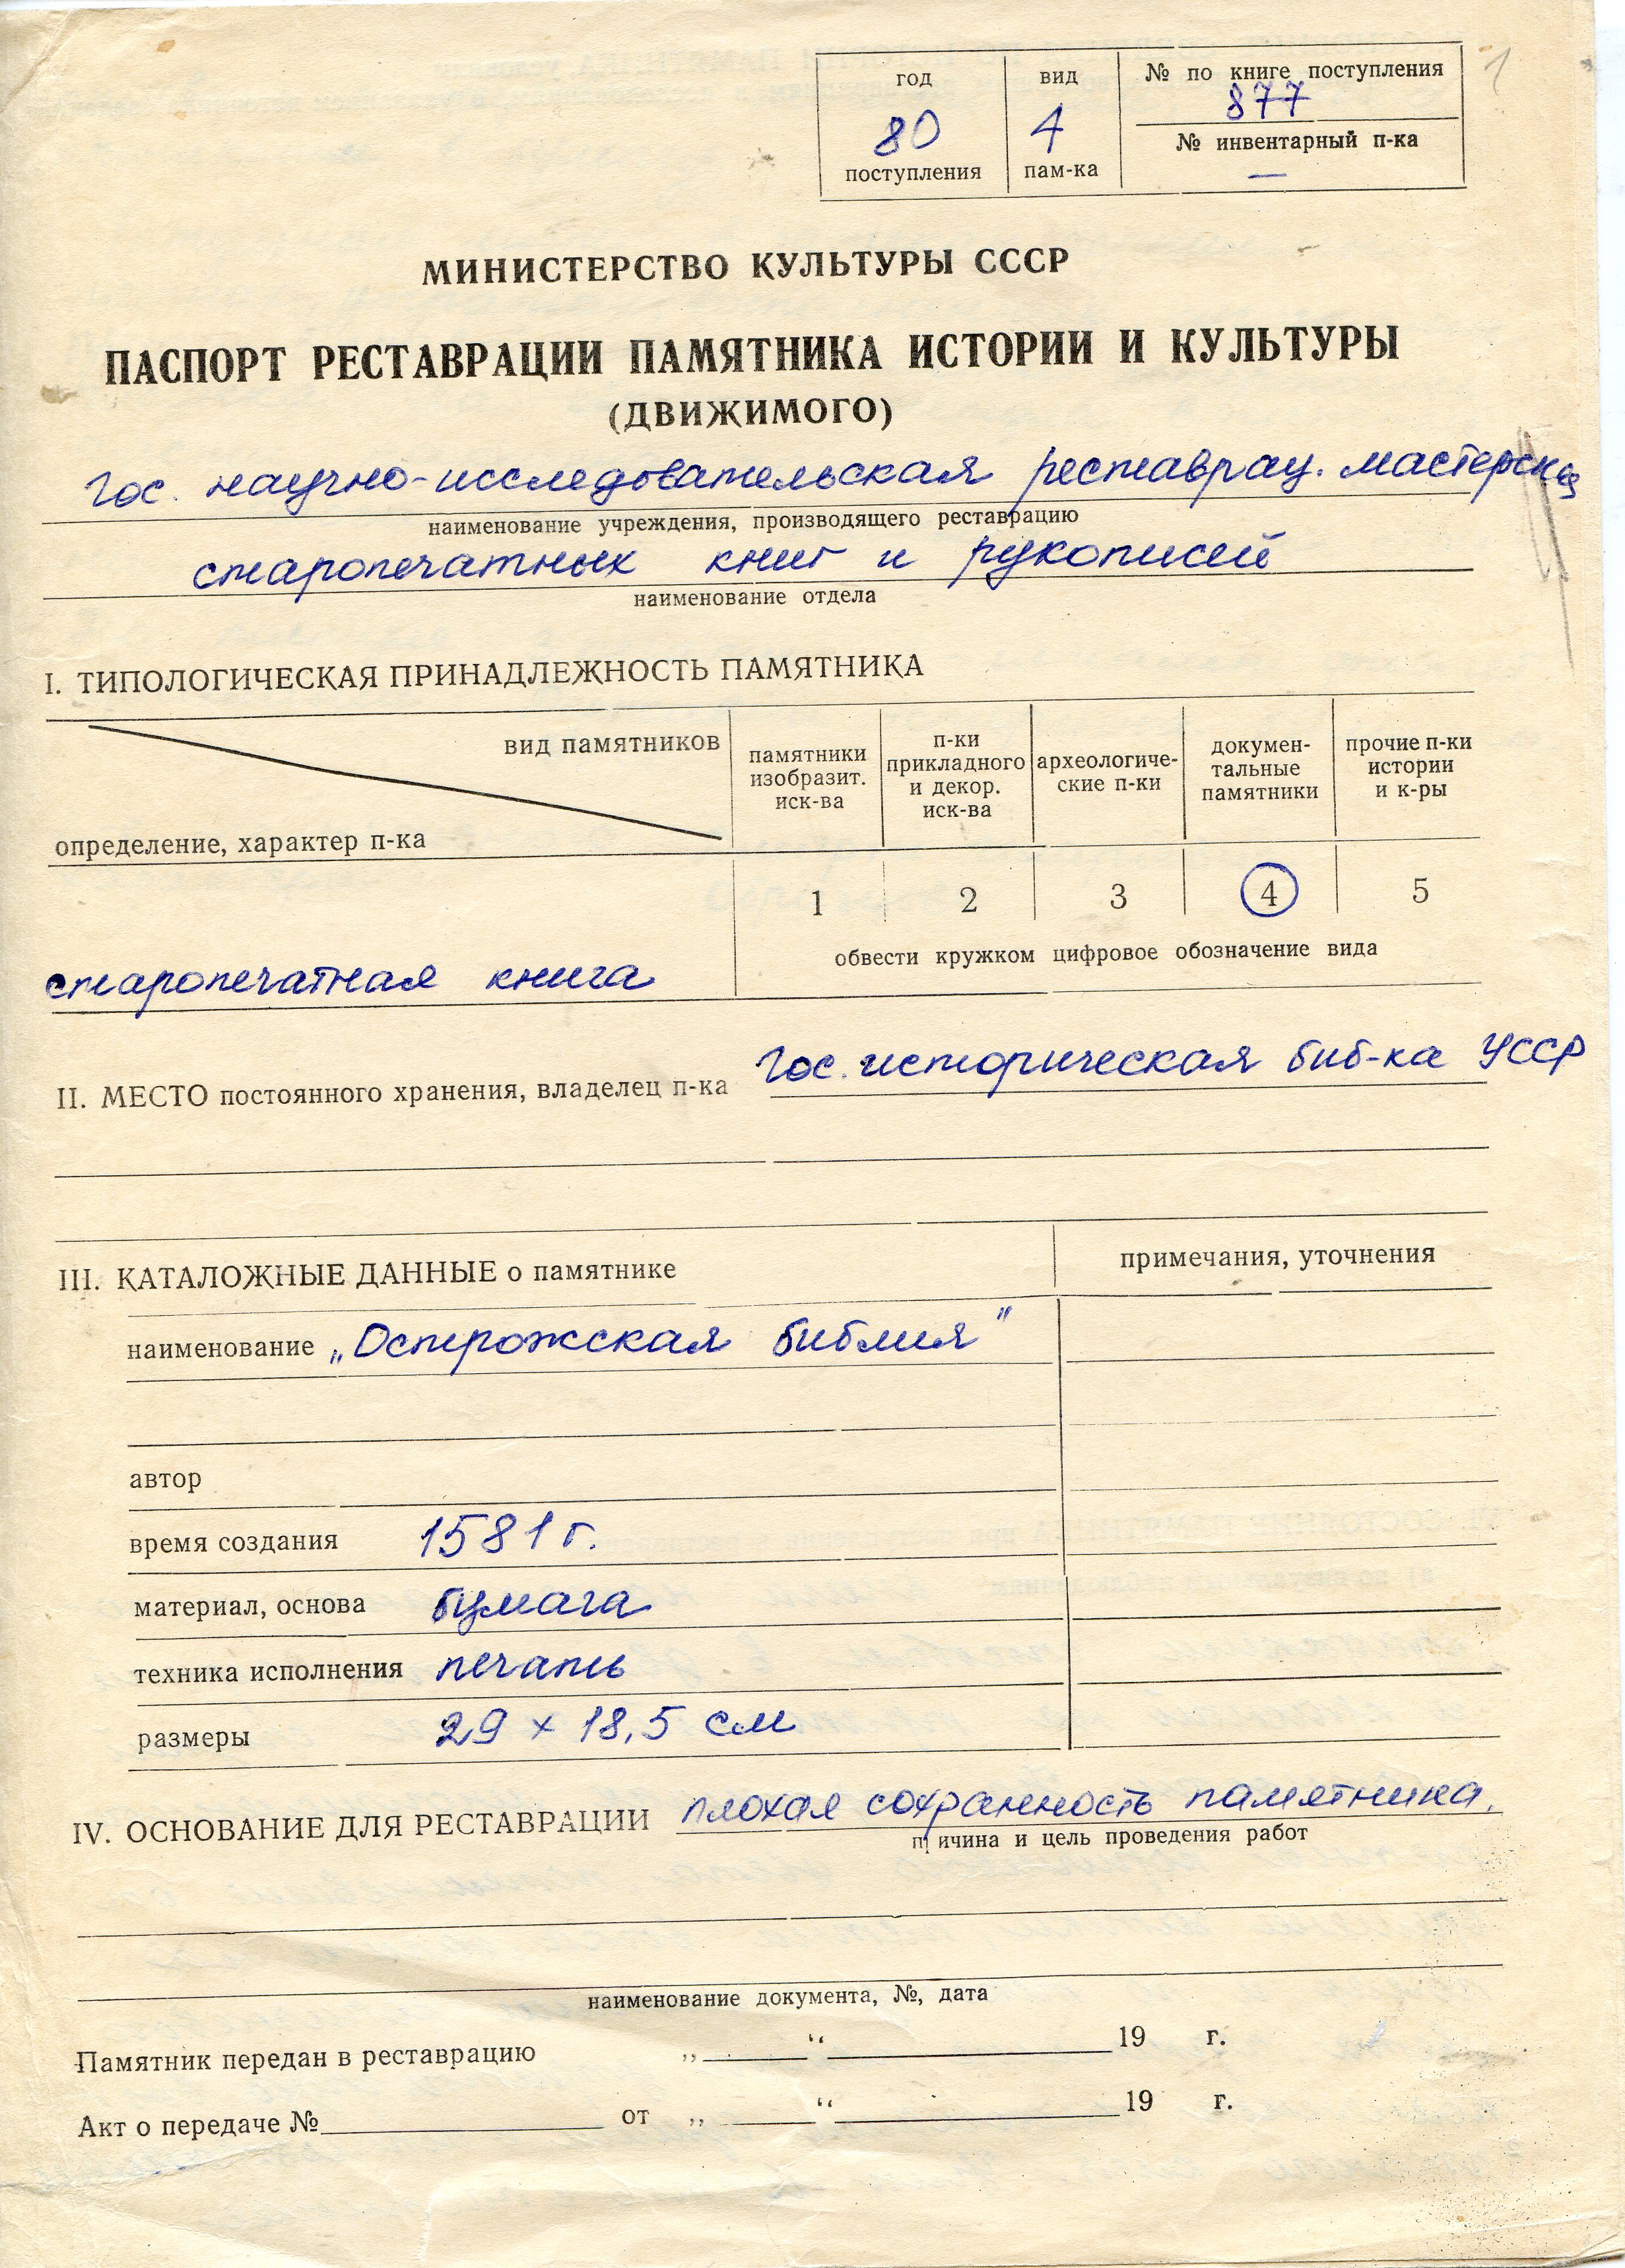 1
год вид № по книге поступления
80 4 877
поступления пам-ка № инвентарный п-ка
—
МИНИСТЕРСТВО КУЛЬТУРЫ СССР
ПАСПОРТ РЕСТАВРАЦИИ ПАМЯТНИКА ИСТОРИИ И КУЛЬТУРЫ
(ДВИЖИМОГО)
Гос. научно-исследовательская реставрац. мастерская
наименование учреждения, производящего реставрацию
старопечатных книг и рукописей
наименование отдела
I. ТИПОЛОГИЧЕСКАЯ ПРИНАДЛЕЖНОСТЬ ПАМЯТНИКА
вид памятников
определение, характер п-ка
памятники
изобразит.
иск-ва
п-ки
прикладного
и декор.
иск-ва
археологиче-
ские п-ки
докумен-
тальные
памятники
прочие п-ки
истории
и к-ры
1 2 3 4 5
обвести кружком цифровое обозначение вида
старопечатная книга
II. МЕСТО постоянного хранения, владелец п-ка Гос. историческая биб-ка УССР
III. КАТАЛОЖНЫЕ ДАННЫЕ о памятнике примечания, уточнения
наименование „Острожская библия"
автор
время создания 1581 г.
материал, основа бумага
техника исполнения печать
размеры 29 х 18,5 см
IV. ОСНОВАНИЕ ДЛЯ РЕСТАВРАЦИИ плохая сохранность памятника.
п ичина и цель проведения работ
наименование документа, №, дата
Памятник передан в реставрацию „ “ 19 г.
Акт о передаче № от „ “ 19 г.